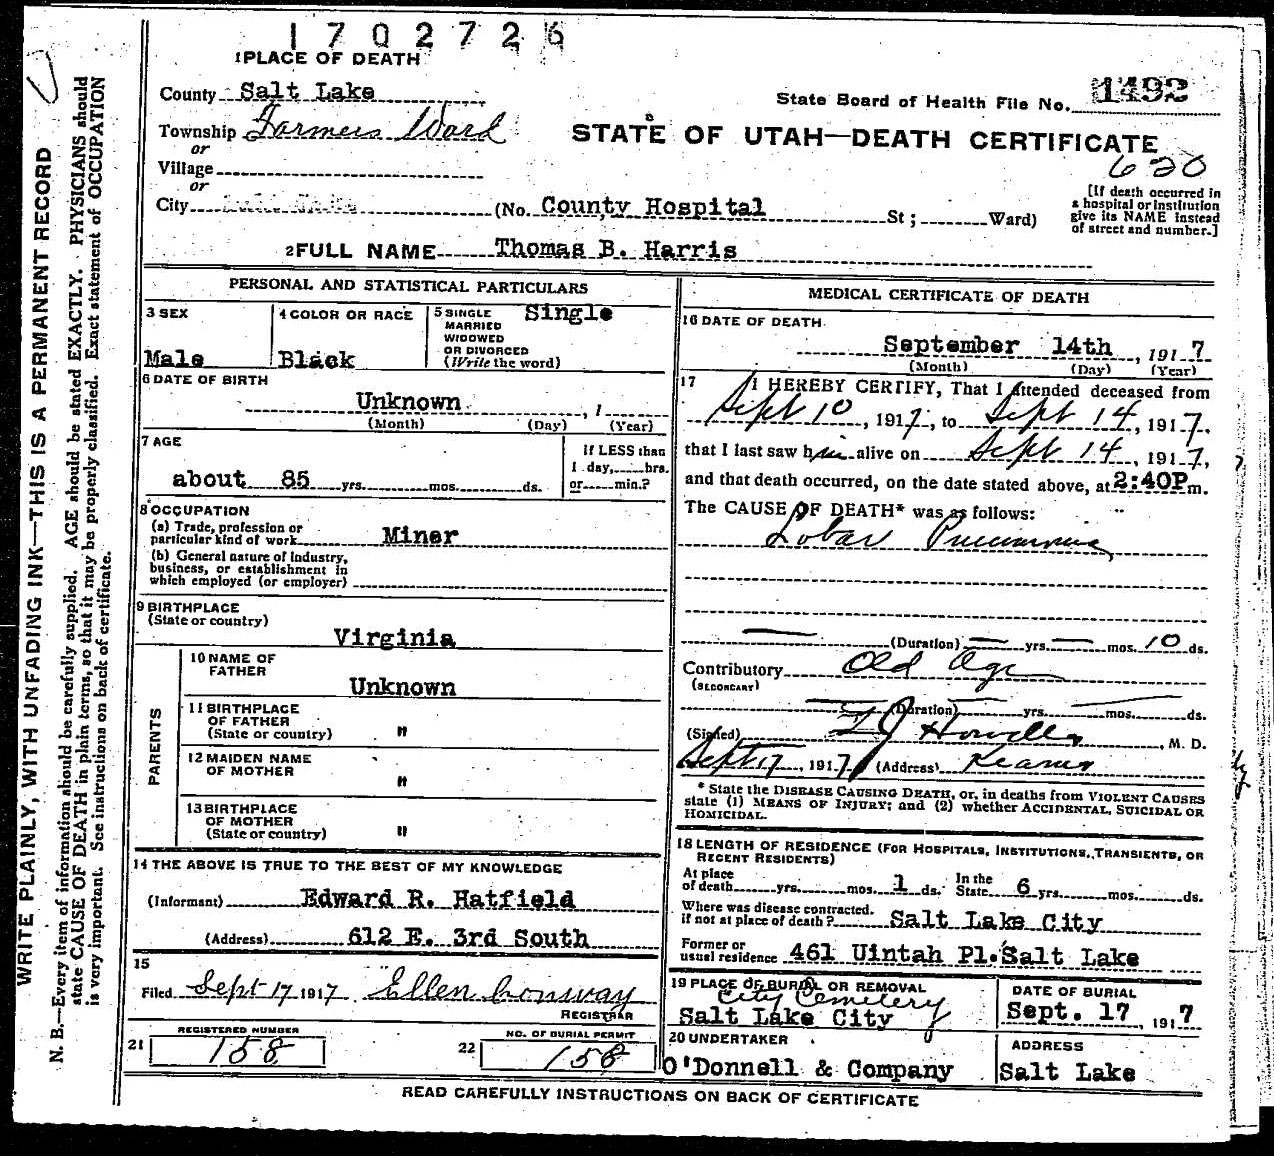 1702726
1 PLACE OF DEATH
County Salt Lake
State Board of Health File No. 1492
Township Farmers Ward
STATE OF UTAH—DEATH CERTIFICATE
or
620
Village
or
[If death occurred in
a hospital or institution
give its NAME instead
of street and number.]
City (No. County Hospital St; Ward)
2 FULL NAME Thomas B. Harris
PERSONAL AND STATISTICAL PARTICULARS
3 SEX
Male
4 COLOR OR RACE
Black
5 SINGLE
MARRIED
WIDOWED
OR DIVORCED
(Write the word)
Single
6 DATE OF BIRTH
Unknown , 1
(Month) (Day) (Year)
7 AGE
about 85 yrs. mos. ds.
If LESS than
1 day, hrs.
or min.?
8 OCCUPATION
(a) Trade, profession or
particular kind of work Miner
(b) General nature of industry,
business, or establishment in
which employed (or employer)
9 BIRTHPLACE
(State or country)
Virginia
PARENTS
10 NAME OF
FATHER
Unknown
11 BIRTHPLACE
OF FATHER
(State or country) "
12 MAIDEN NAME
OF MOTHER "
13 BIRTHPLACE
OF MOTHER
(State or country) "
14 THE ABOVE IS TRUE TO THE BEST OF MY KNOWLEDGE
(Informant) Edward R. Hatfield
(Address) 612 E. 3rd South
15
Filed Sept 17 1917 Ellen Conway
REGISTRAR
21 REGISTERED NUMBER
158
22 NO. OF BURIAL PERMIT
158
MEDICAL CERTIFICATE OF DEATH
16 DATE OF DEATH
September 14th , 1917
(Month) (Day) (Year)
17 I HEREBY CERTIFY, That I attended deceased from
Sept 10 , 1917, to Sept 14 , 1917,
that I last saw him alive on Sept 14 , 1917,
and that death occurred, on the date stated above, at 2:40P m.
The CAUSE OF DEATH* was as follows:
Lobar Pneumonia
(Duration) yrs. mos. 10 ds.
Contributory Old Age
(SECONDARY)
(Duration) yrs. mos. ds.
(Signed) Howells , M. D.
Sept 17 , 1917 (Address) Kearns
* State the DISEASE CAUSING DEATH, or, in deaths from VIOLENT CAUSES
state (1) MEANS OF INJURY; and (2) whether ACCIDENTAL, SUICIDAL OR
HOMICIDAL.
18 LENGTH OF RESIDENCE (FOR HOSPITALS, INSTITUTIONS, TRANSIENTS, OR
RECENT RESIDENTS)
At place
of death yrs. mos. 1 ds. In the
State 6 yrs. mos. ds.
Where was disease contracted.
if not at place of death? Salt Lake City
Former or
usual residence 461 Uintah Pl. Salt Lake
19 PLACE OF BURIAL OR REMOVAL
City Cemetery
Salt Lake City
DATE OF BURIAL
Sept. 17 , 1917
20 UNDERTAKER
O'Donnell & Company
ADDRESS
Salt Lake
READ CAREFULLY INSTRUCTIONS ON BACK OF CERTIFICATE
WRITE PLAINLY, WITH UNFADING INK—THIS IS A PERMANENT RECORD
N. B.—Every item of information should be carefully supplied. AGE should be stated EXACTLY. PHYSICIANS should
state CAUSE OF DEATH in plain terms, so that it may be properly classified. Exact statement of OCCUPATION
is very important. See instructions on back of certificate.